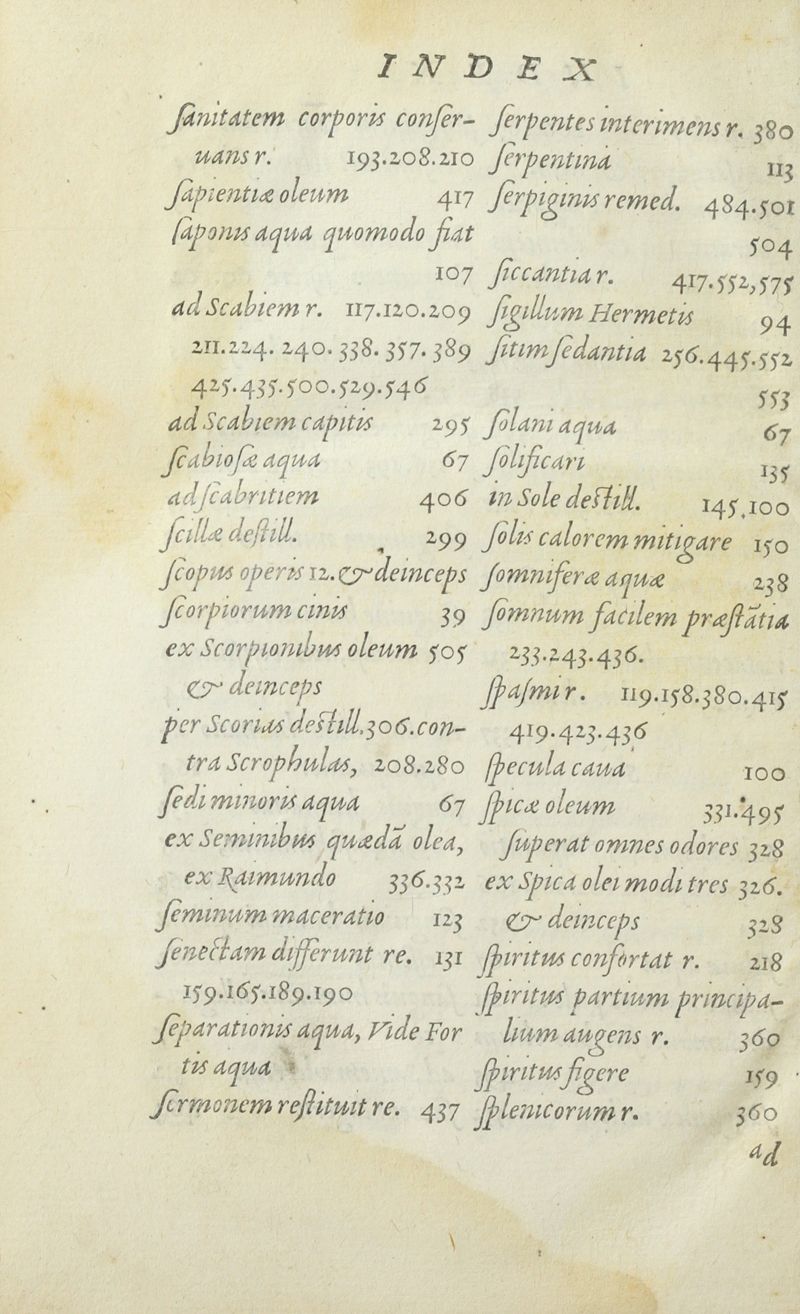 INDEX
ſanitatem corporis conſer-
uans r. 193.208.210
ſapientiæ oleum 417
ſaponis aqua quomodo fiat
107
ad Scabiem r. 117.120.209
211.224. 240. 338. 357. 389
425.435.500.529.546
ad Scabiem capitis 295
ſcabioſæ aqua 67
ad ſcabritiem 406
ſcillæ deſtill. 299
ſcopus operis 12. & deinceps
ſcorpiorum cinis 39
ex Scorpionibus oleum 505
& deinceps
per Scorias deſtill. 306. con-
tra Scrophulas, 208.280
ſedi minoris aqua 67
ex Seminibus quædā olea,
ex Raimundo 336.332
ſeminum maceratio 123
ſenectam differunt re. 131
159.165.189.190
ſeparationis aqua, Vide For
tis aqua
ſermonem reſtituit re. 437
ſerpentes interimens r. 380
ſerpentina 113
ſerpiginis remed. 484.501
504
ſiccantia r. 417.552,575
ſigillum Hermetis 94
ſitim ſedantia 256.445.552
553
ſolani aqua 67
ſolificari 135
in Sole deſtill. 145,100
ſolis calorem mitigare 150
ſomniferæ aquæ 238
ſomnum facilem præſtātia
233.243.436.
ſpaſmi r. 119.158.380.415
419.423.436
ſpecula caua 100
ſpicæ oleum 331.495
ſuperat omnes odores 328
ex Spica olei modi tres 326.
& deinceps 328
ſpiritus confortat r. 218
ſpiritus partium principa-
lium augens r. 360
ſpiritus figere 159
ſplenicorum r. 360
ad